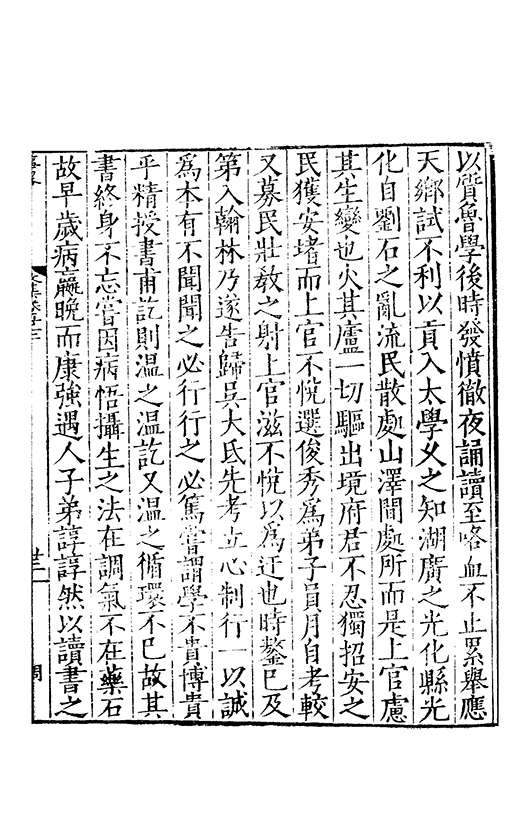 以質魯學後時發憤徹夜誦讀至咯血不止累舉應
天鄉試不利以貢入太學乆之知湖廣之光化縣光
化自劉石之亂流民散處山澤間處所而是上官慮
其生變也火其廬一切驅出境府君不忍獨招安之
民獲安堵而上官不悅選俊秀爲弟子員月自考較
又募民壯敎之射上官滋不悅以爲迂也時鏊已及
第入翰林乃遂告歸吳大氏先考立心制行一以誠
爲本有不聞聞之必行行之必篤嘗謂學不貴博貴
乎精授書甫訖則温之温訖又温之循環不已故其
書終身不忘嘗因病悟攝生之法在調氣不在藥石
故早歲病羸晚而康強遇人子弟諄諄然以讀書之